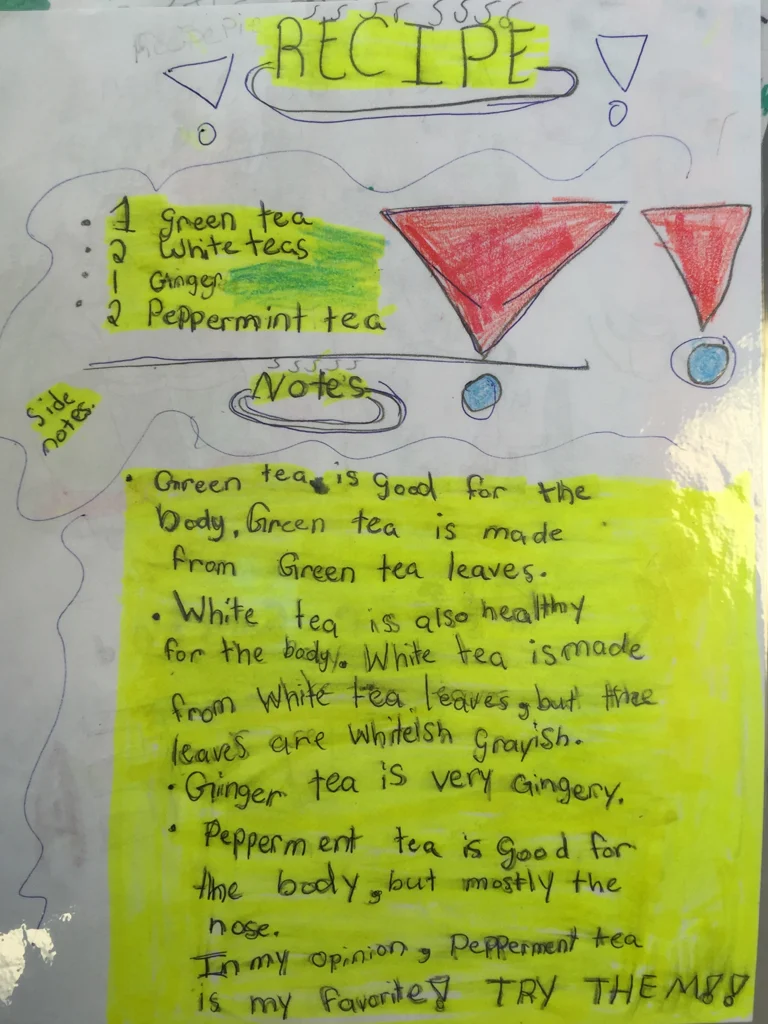 RECIPE
1 Green tea
2 White teas
1 Ginger
2 Peppermint tea
Notes
Side
notes.
• Green tea is good for the
body. Green tea is made
from Green tea leaves.
• White tea is also healthy
for the body. White tea is made
from White tea leaves, but the
leaves are Whiteish Grayish.
• Ginger tea is very Gingery.
• Pepperment tea is Good for
the body, but mostly the
nose.
In my opinion, Pepperment tea
is my favorite! TRY THEM!!